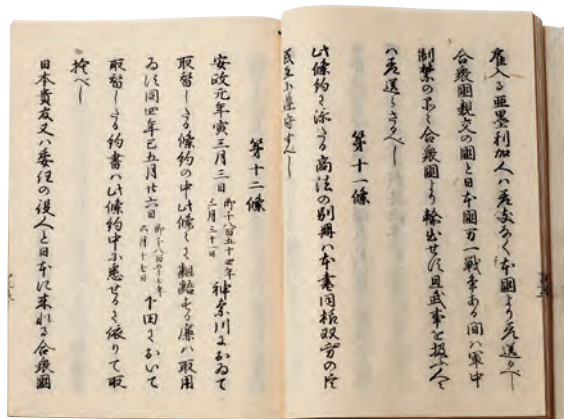 雇入る亜墨利加人ハ差支なく本國より差送るへし
合衆國親交の國と日本國万一戦争ある間ハ軍中
制禁の品々合衆國より輸出せす且武事を扱ふ人々
ハ差送らさるへし
第十一條
此條約に添たる商法の別冊ハ本書同様双方の臣
民互に遵守すへし
第十二條
安政元年寅三月三日即千八百五十四年三月三十一日神奈川におゐて
取替したる條約の中此條々に齟齬する廉ハ取用
ゐす同四年巳五月廿六日即千八百五十七年六月十七日下田におゐて
取替したる約書ハ此條約中に悉せるに依りて取
捨へし
日本貴官又ハ委任の役人と日本に来れる合衆國